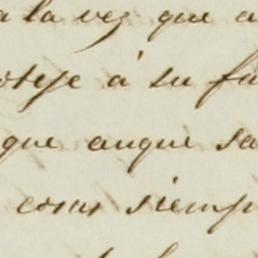 a la vez que a
otege á su fa
que auque sa
como siemp